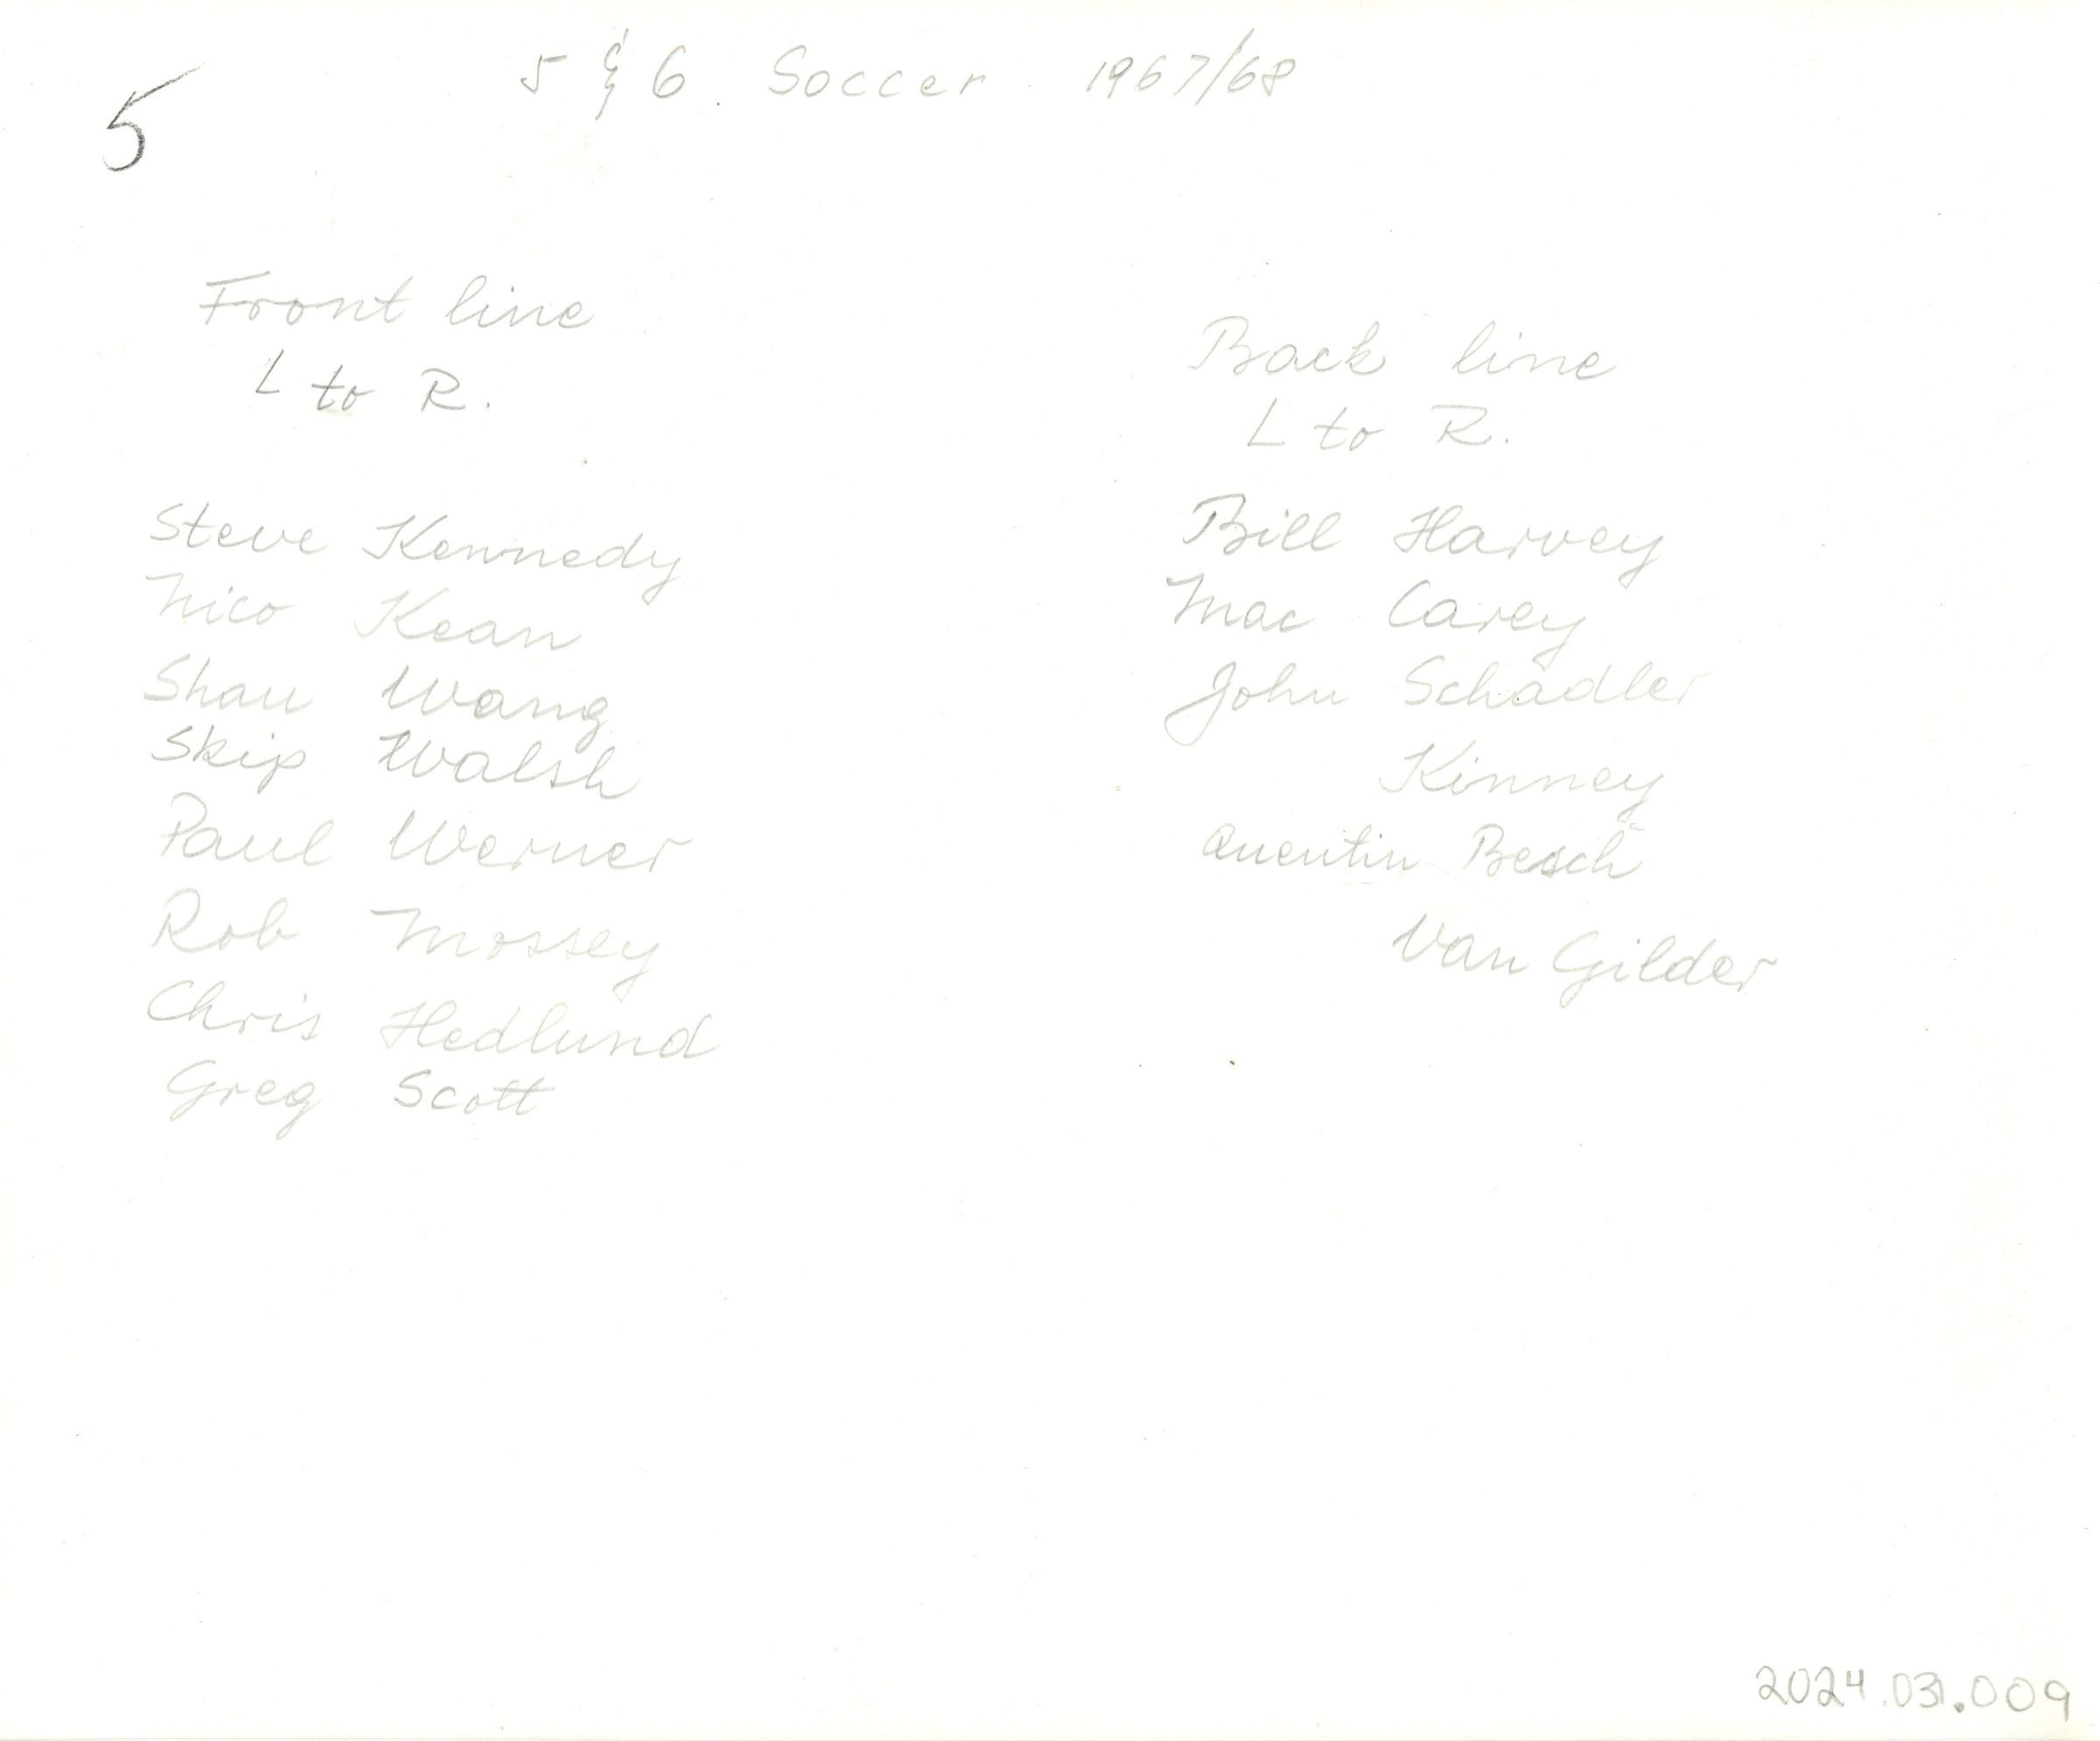 5 & 6 Soccer 1967/68
5
Front line
L to R.
Steve Kennedy
Nico Kean
Shau Wang
Skip Walsh
Paul Werner
Rob Mossey
Chris Hedlund
Greg Scott
Back line
L to R.
Bill Harvey
Mac Carey
John Schädler
Kinney
Quentin Besch
Van Gilder
2024.03.009